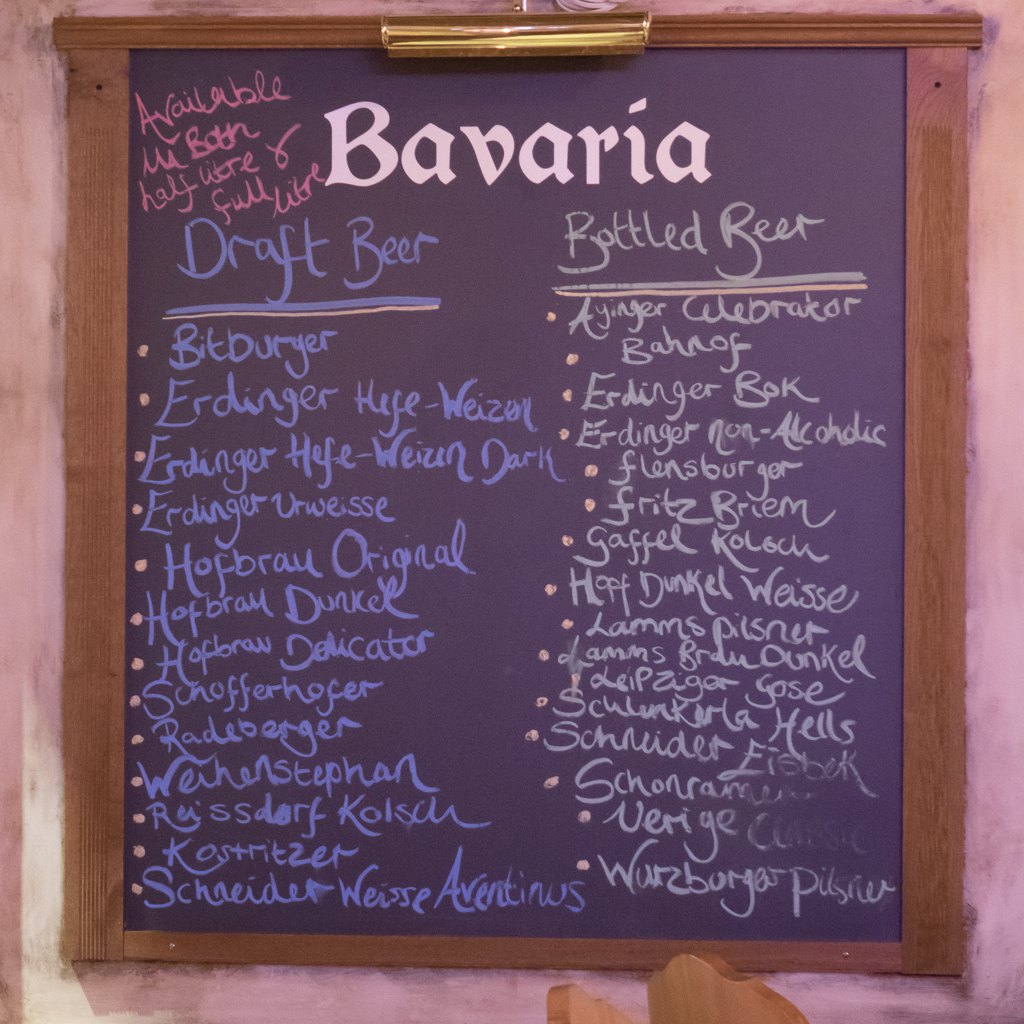 Available
in Both
half litre &
full litre
Bavaria
Draft Beer
Bitburger
Erdinger Hefe-Weizen
Erdinger Hefe-Weizen Dark
Erdinger Urweisse
Hofbrau Original
Hofbrau Dunkel
Hofbrau Delicator
Schofferhofer
Radeberger
Weihenstephan
Reissdorf Kolsch
Kostritzer
Schneider Weisse Aventinus
Bottled Beer
Ayinger Celebrator
Bahnof
Erdinger Bok
Erdinger non-Alcoholic
flensburger
fritz Briem
Gaffel Kolsch
Hopf Dunkel Weisse
Lamms pilsner
Lamms Brau Dunkel
Leipziger Gose
Schlenkerla Hells
Schneider Eisbek
Schonramer
Uerige Classic
Wurzburger pilsner